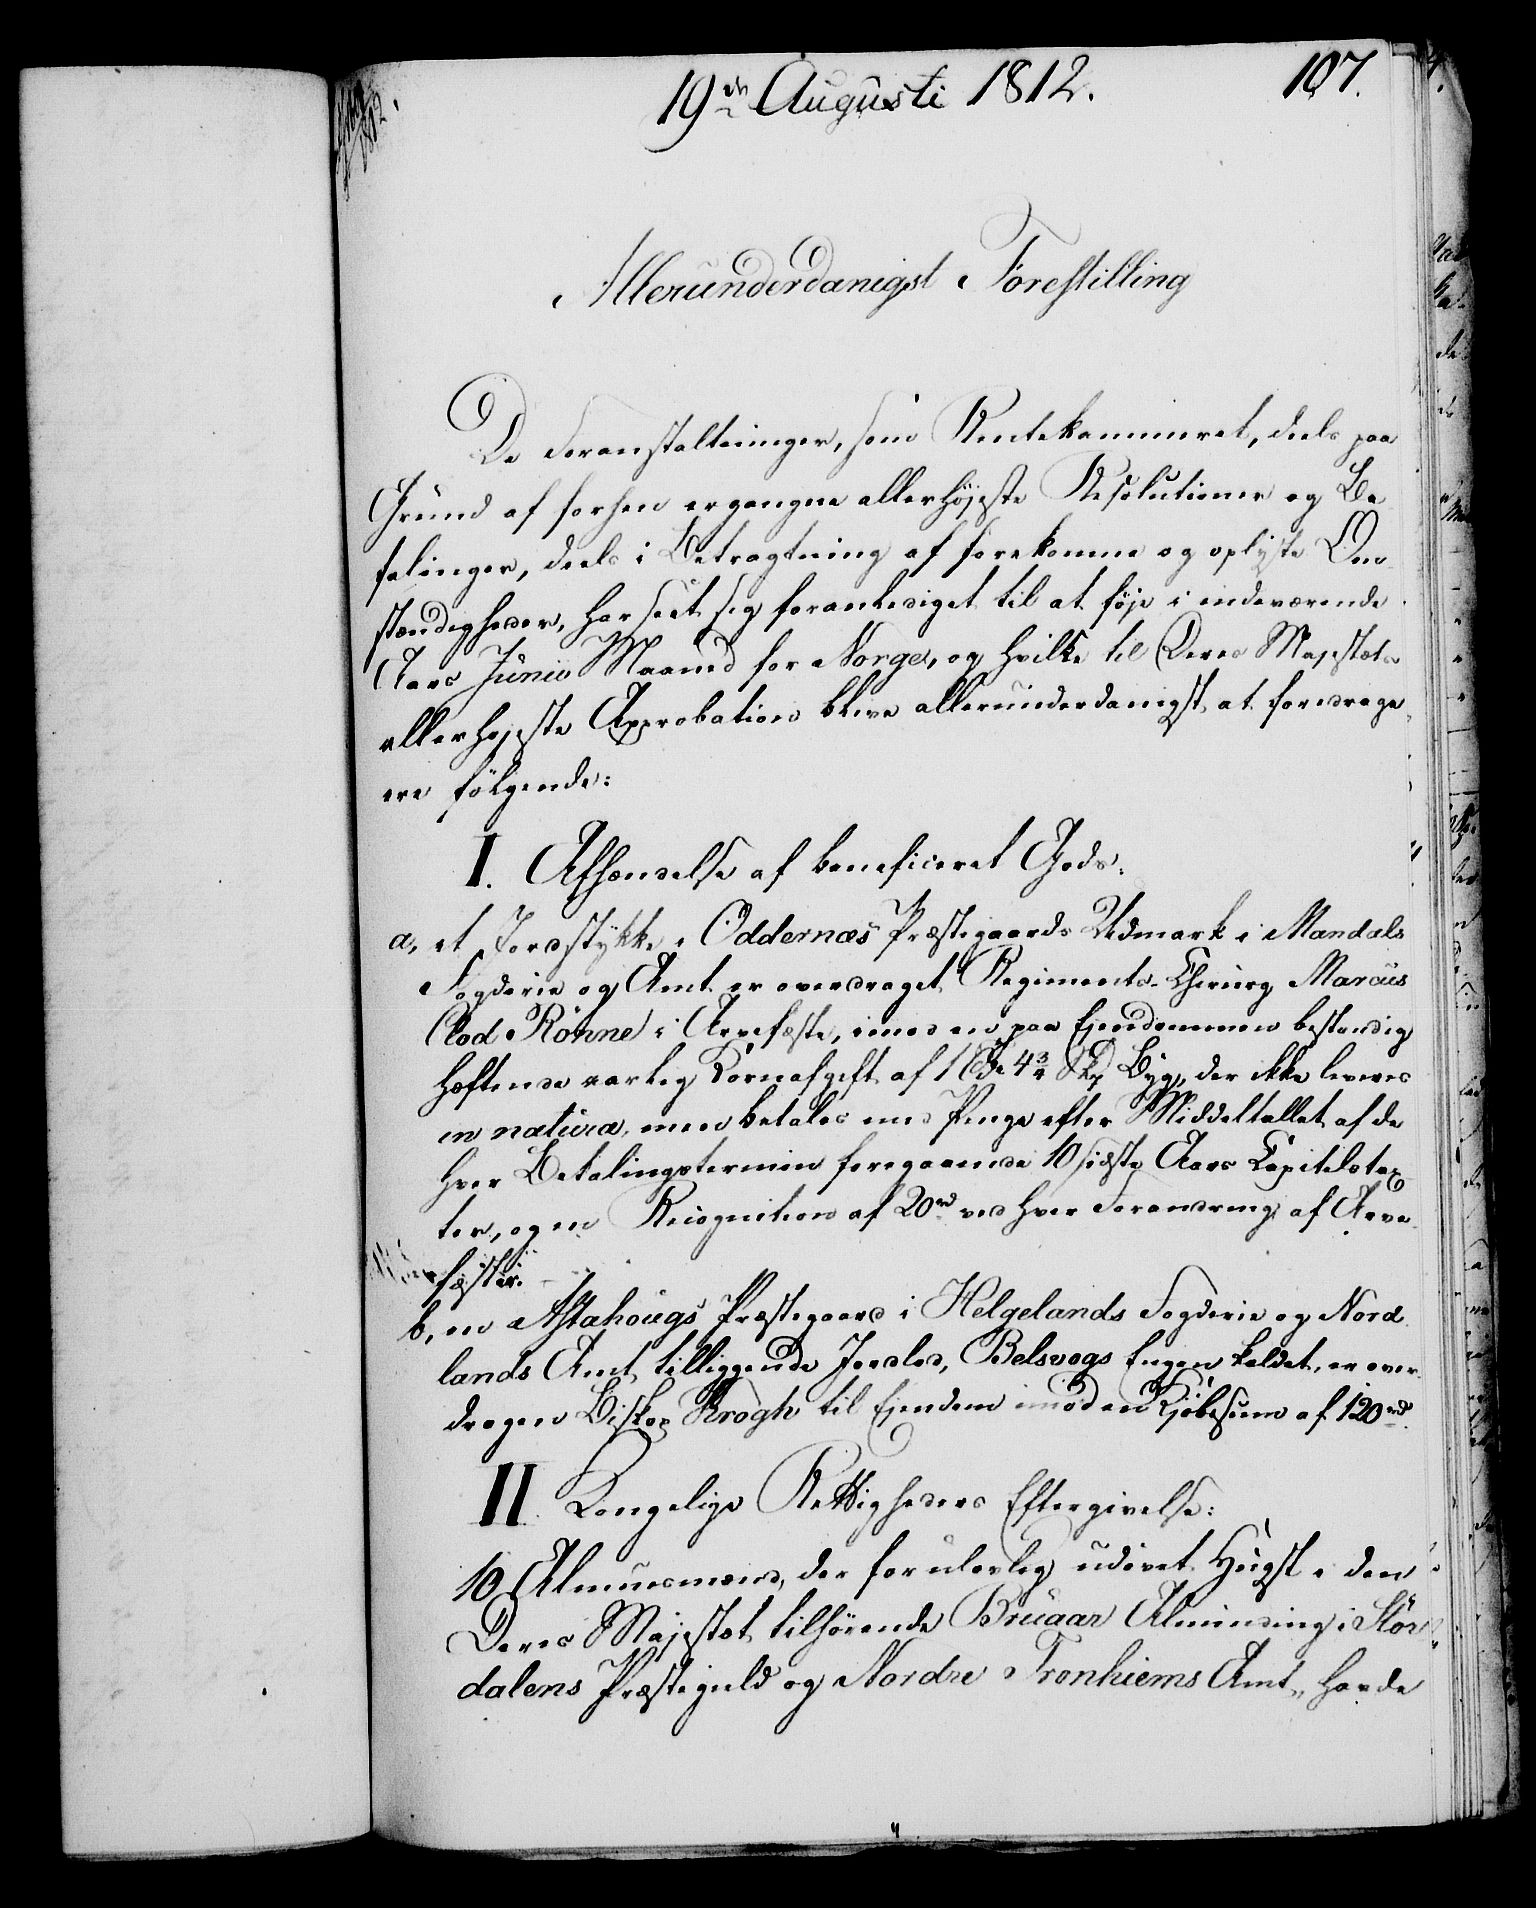 19de Augusti 1812.
107.
Allerunderdanigst Forestilling
De Foranstaltninger, som Rentekammeret, deels paa
Grund af forhen ergangne allerhøjeste Resolutioner og Be
falinger, deels i Betragtning af forekomne og oplyste Om
stændigheder, har seet sig foranlediget til at føje i indeværende
Aars Junii Maaned for Norge, og hvilke til Deres Majestæts
allerhøjeste Approbation blive allerunderdanigst at foredrage
ere følgende:
I. Afhændelse af beneficeret Gods.
a, et Jordstykke i Oddernæs Præstegaards Udmark i Mandals
Fogderie og Amt er overdraget Regiments-Chirurg Marcus
Clod Rönne i Arvefæste, imod en paa Ejendommen bestandig
hæftende aarlig Kornafgift af 1 Tde 4¾ Skp Byg, der ikke leveres
in natura, men betales med Penge efter Middeltallet af de
hver Betalingstermin foregaaende 10 sidste Aars Capitelstax
ter, og en Recognition af 20 rd ved hver Forandring af Arve
fæster.
b, en Alstahougs Præstegaard i Helgelands Fogderie og Nord
lands Amt tilliggende Jordlod, Belsvogs Engen kaldet, er over
dragen Biskop Krogh til Ejendom imod en Kjøbesum af 120 rd.
II. Kongelige Rettigheders Eftergivelse:
10 Almuesmænd, der for ulovlig udøvet Hugst i den
Deres Majestæt tilhørende Bruaar Alminding i Stör
dalens Præstegield og Nordre Tronhiems Amt, havde